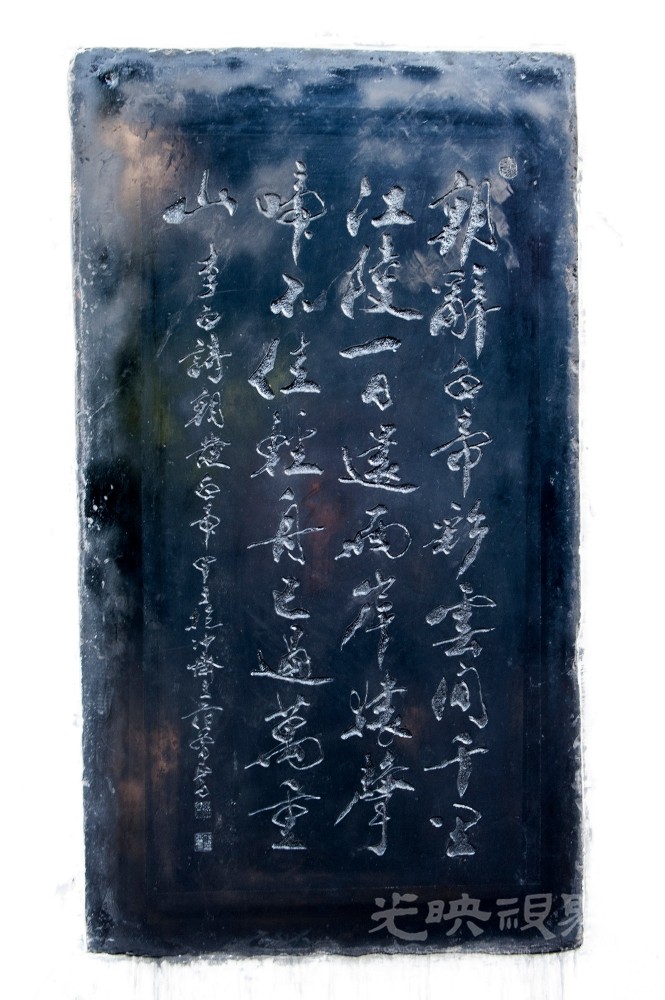 朝辭白帝彩雲間千里
江陵一日還兩岸猿聲
啼不住輕舟已過萬重
山 李白詩朝發白帝甲子抱沖齋主范曾
光映視界